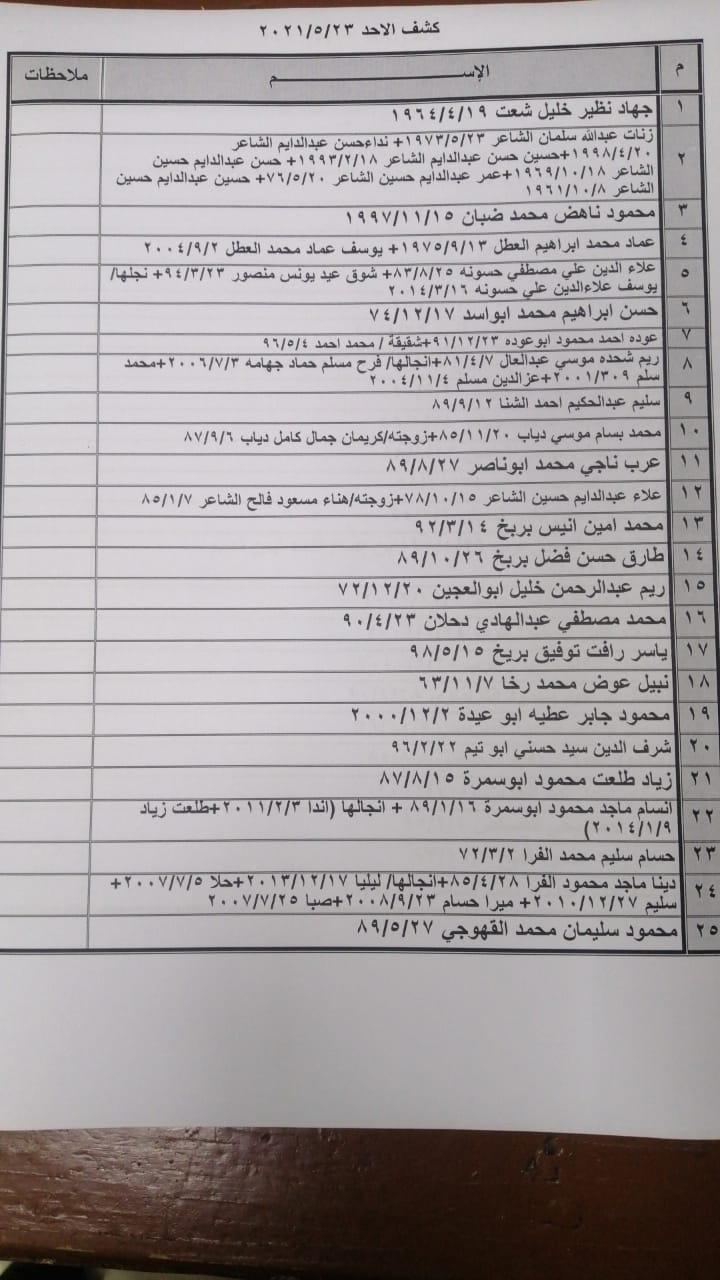 كشف الاحد ٢٠٢١/٥/٢٣
م الإســـــــــــــــــــــــم ملاحظات
١ جهاد نظير خليل شعت ١٩٦٤/٤/١٩
٢ زنات عبدالله سلمان الشاعر ١٩٧٣/٥/٢٣+ نداءحسن عبدالدايم الشاعر
١٩٩٨/٤/٢٠+حسين حسن عبدالدايم الشاعر ١٩٩٣/٢/١٨+ حسن عبدالدايم حسين
الشاعر ١٩٦٩/١٠/١٨+عمر عبدالدايم حسين الشاعر ٧٦/٥/٢٠+ حسين عبدالدايم حسين
الشاعر ١٩٦١/١٠/٨
٣ محمود ناهض محمد ضبان ١٩٩٧/١١/١٥
٤ عماد محمد ابراهيم العطل ١٩٧٥/٩/١٣+ يوسف عماد محمد العطل ٢٠٠٤/٩/٢
٥ علاء الدين علي مصطفي حسونه ٨٣/٨/٢٥+ شوق عيد يونس منصور ٩٤/٣/٢٣+ نجلها/
يوسف علاءالدين علي حسونه ٢٠١٤/٣/١٦
٦ حسن ابراهيم محمد ابواسد ٧٤/١٢/١٧
٧ عوده احمد محمود ابوعوده ٩١/١٢/٢٣+شقيقة / محمد احمد ٩٦/٥/٤
٨ ريم شحده موسي عبدالعال ٨١/٤/٧+انجالها/ فرح مسلم حماد جهامه ٢٠٠٦/٧/٣+محمد
سلم ٢٠٠١/٣٠٩+عزالدين مسلم ٢٠٠٤/١١/٤
٩ سليم عبدالحكيم احمد الشنا ٨٩/٩/١٢
١٠ محمد بسام موسي دياب ٨٥/١١/٢٠+زوجته/كريمان جمال كامل دياب ٨٧/٩/٦
١١ عرب ناجي محمد ابوناصر ٨٩/٨/٢٧
١٢ علاء عبدالدايم حسين الشاعر ٧٨/١٠/١٥+زوجته/هناء مسعود فالح الشاعر ٨٥/١/٧
١٣ محمد امين انيس بربخ ٩٢/٣/١٤
١٤ طارق حسن فضل بربخ ٨٩/١٠/٢٦
١٥ ريم عبدالرحمن خليل ابوالعجين ٧٢/١٢/٢٠
١٦ محمد مصطفي عبدالهادي دحلان ٩٠/٤/٢٣
١٧ ياسر رافت توفيق بريخ ٩٨/٥/١٥
١٨ نبيل عوض محمد رخا ٦٣/١١/٧
١٩ محمود جابر عطيه ابو عيدة ٢٠٠٠/١٢/٢
٢٠ شرف الدين سيد حسني ابو تيم ٩٦/٢/٢٢
٢١ زياد طلعت محمود ابوسمرة ٨٧/٨/١٥
٢٢ انسام ماجد محمود ابوسمرة ٨٩/١/١٦ + انجالها (اندا ٢٠١١/٢/٣+طلعت زياد
٢٠١٤/١/٩)
٢٣ حسام سليم محمد الفرا ٧٢/٣/٢
٢٤ دينا ماجد محمود الفرا ٨٥/٤/٢٨+انجالها/ ليليا ٢٠١٣/١٢/١٧+حلا ٢٠٠٧/٧/٥+
سليم ٢٠١٠/١٢/٢٧+ ميرا حسام ٢٠٠٨/٩/٢٣+صبا ٢٠٠٧/٧/٢٥
٢٥ محمود سليمان محمد القهوجي ٨٩/٥/٢٧